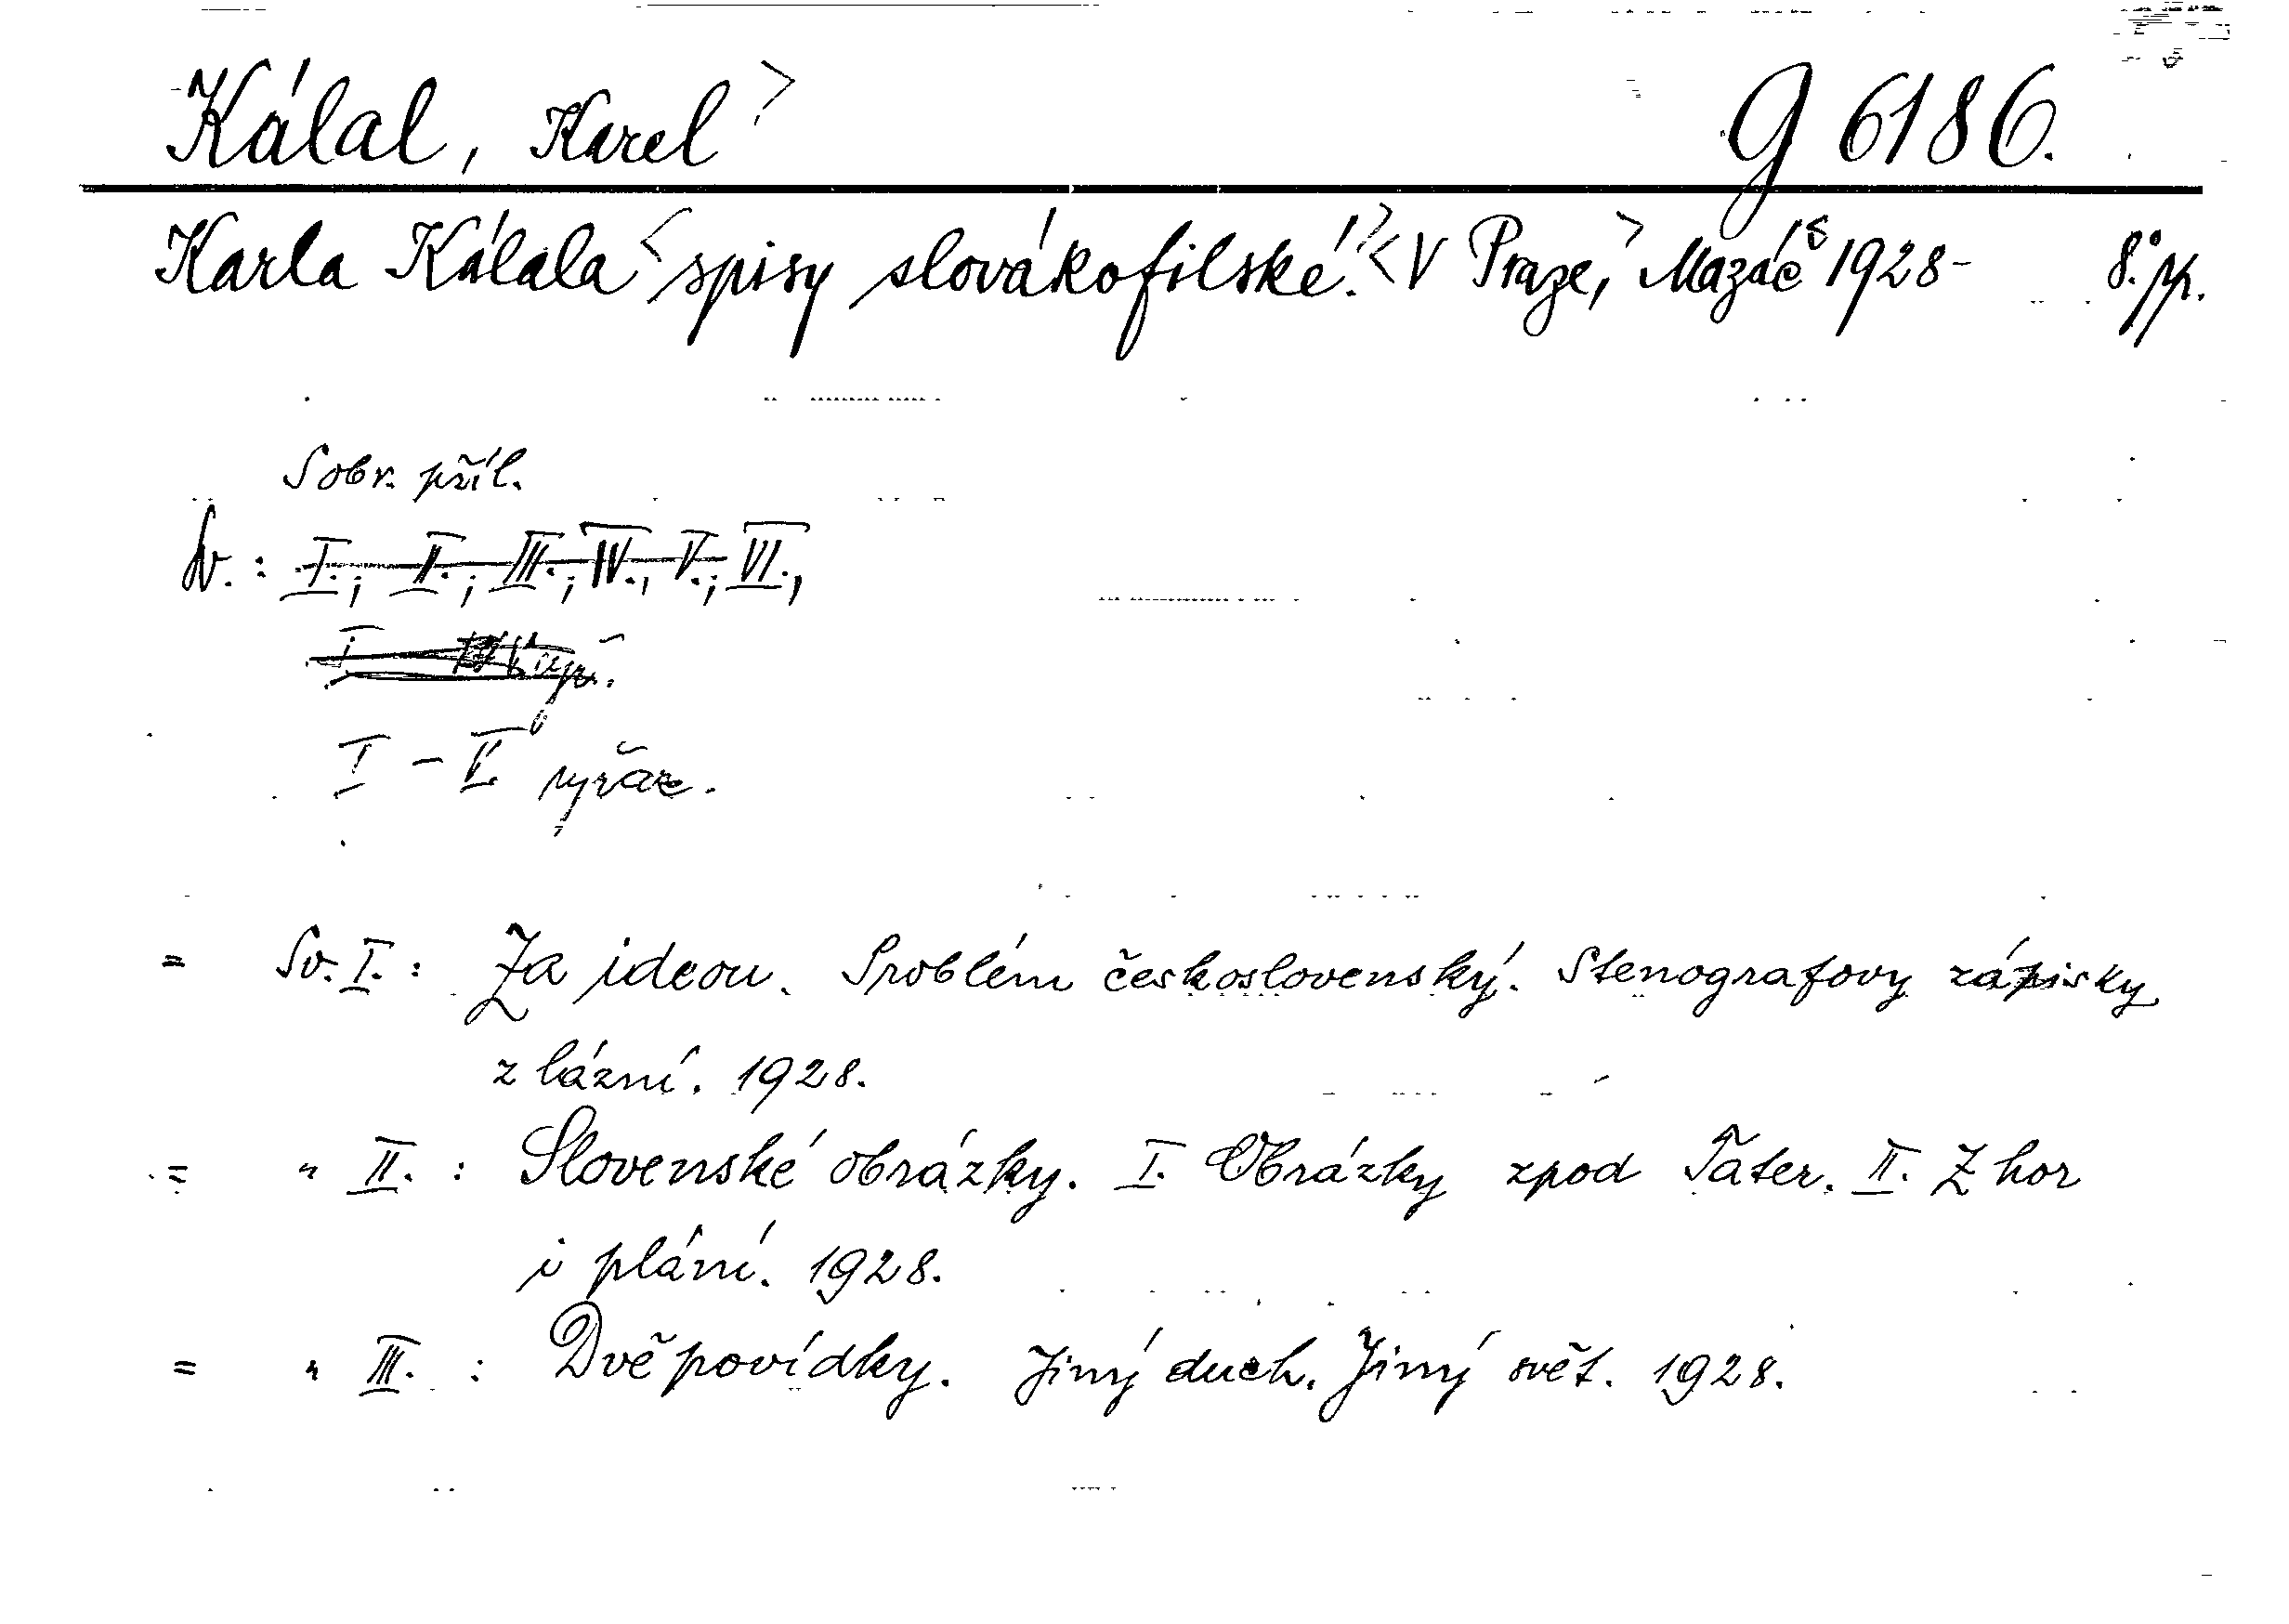 Kálal, Karel> G 6186.
Karla Kálala <spisy slovákofilské.> <V Praze,> Mazáč 1928- 8°. pp.
Sobr. příl.
Sv.: I., II., III., IV., V., VI.,
I - V vyřaz.
= Sv. I.: Za ideou. Problém československý. Stenografovy zápisky
z lázní. 1928.
= " II.: Slovenské obrázky. I. Obrázky zpod Tater. II. Z hor
i plání. 1928.
= " III.: Dvě povídky. Jiný duch. Jiný svět. 1928.